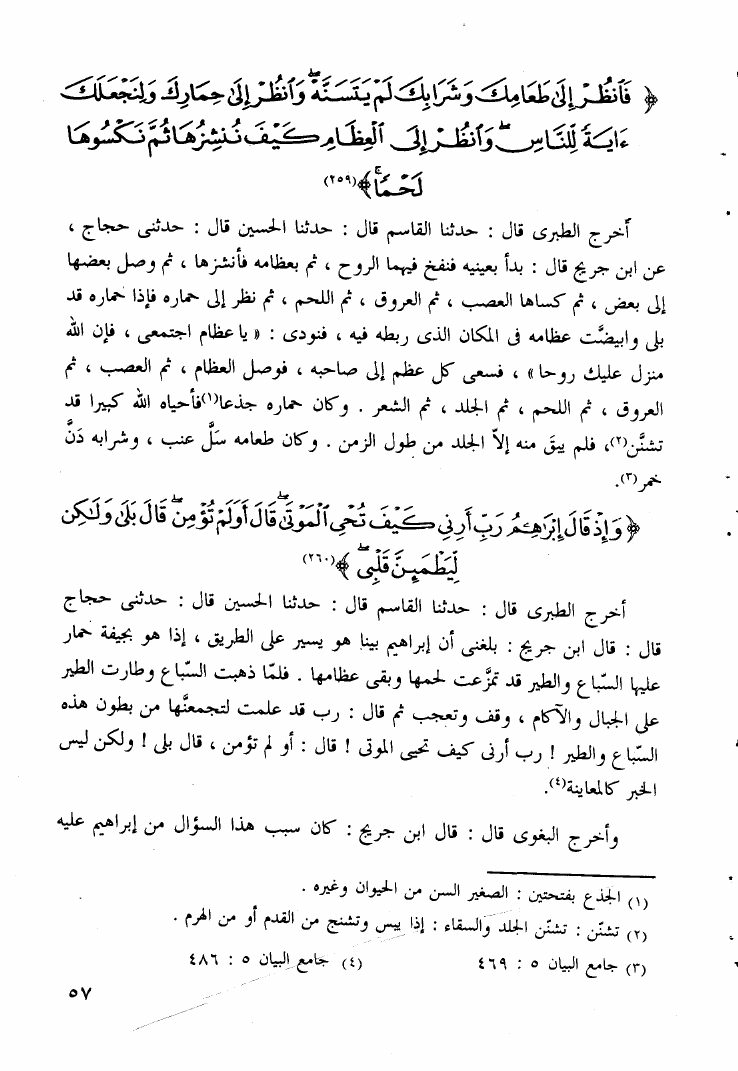 ﴿ فَٱنظُرْ إِلَىٰ طَعَامِكَ وَشَرَابِكَ لَمْ يَتَسَنَّهْ ۖ وَٱنظُرْ إِلَىٰ حِمَارِكَ وَلِنَجْعَلَكَ
ءَايَةً لِّلنَّاسِ ۖ وَٱنظُرْ إِلَى ٱلْعِظَامِ كَيْفَ نُنشِزُهَا ثُمَّ نَكْسُوهَا
لَحْمًا ۚ ﴾(٢٥٩)
أخرج الطبرى قال : حدثنا القاسم قال : حدثنا الحسين قال : حدثنى حجاج ،
عن ابن جريج قال : بدأ بعينيه فنفخ فيهما الروح ، ثم بعظامه فأنشزها ، ثم وصل بعضها
إلى بعض ، ثم كساها العصب ، ثم العروق ، ثم اللحم ، ثم نظر إلى حماره فإذا حماره قد
بلى وابيضَّت عظامه فى المكان الذى ربطه فيه ، فنودى : « يا عظام اجتمعى ، فإن الله
منزل عليك روحا» ، فسعى كل عظم إلى صاحبه ، فوصل العظام ، ثم العصب ، ثم
العروق ، ثم اللحم ، ثم الجلد ، ثم الشعر . وكان حماره جذعا(١)فأحياه الله كبيرا قد
تشنَّن(٢)، فلم يبقَ منه إلاّ الجلد من طول الزمن . وكان طعامه سَلَّ عنب ، وشرابه دَنَّ
خمر(٣).
﴿ وَإِذْ قَالَ إِبْرَاهِـۧمُ رَبِّ أَرِنِي كَيْفَ تُحْيِ ٱلْمَوْتَىٰ ۖ قَالَ أَوَلَمْ تُؤْمِن ۖ قَالَ بَلَىٰ وَلَـٰكِن
لِّيَطْمَئِنَّ قَلْبِي ۖ ﴾(٢٦٠)
أخرج الطبرى قال : حدثنا القاسم قال : حدثنا الحسين قال : حدثنى حجاج
قال : قال ابن جريج : بلغنى أن إبراهيم بينا هو يسير على الطريق ، إذا هو بجيفة حمار
عليها السّباع والطير قد تمزَّعت لحمها وبقى عظامها . فلمّا ذهبت السّباع وطارت الطير
على الجبال والآكام ، وقف وتعجب ثم قال : رب قد علمت لتجمعنَّها من بطون هذه
السّباع والطير ! رب أرنى كيف تحيى الموتى ! قال : أو لم تؤمن ، قال بلى ! ولكن ليس
الخبر كالمعاينة(٤).
وأخرج البغوى قال : قال ابن جريج : كان سبب هذا السؤال من إبراهيم عليه
(١) الجذع بفتحتين : الصغير السن من الحيوان وغيره .
(٢) تشنّن : تشنّن الجلد والسقاء : إذا يبس وتشنج من القدم أو من الهرم .
(٣) جامع البيان ٥ : ٤٦٩ (٤) جامع البيان ٥ : ٤٨٦
٥٧